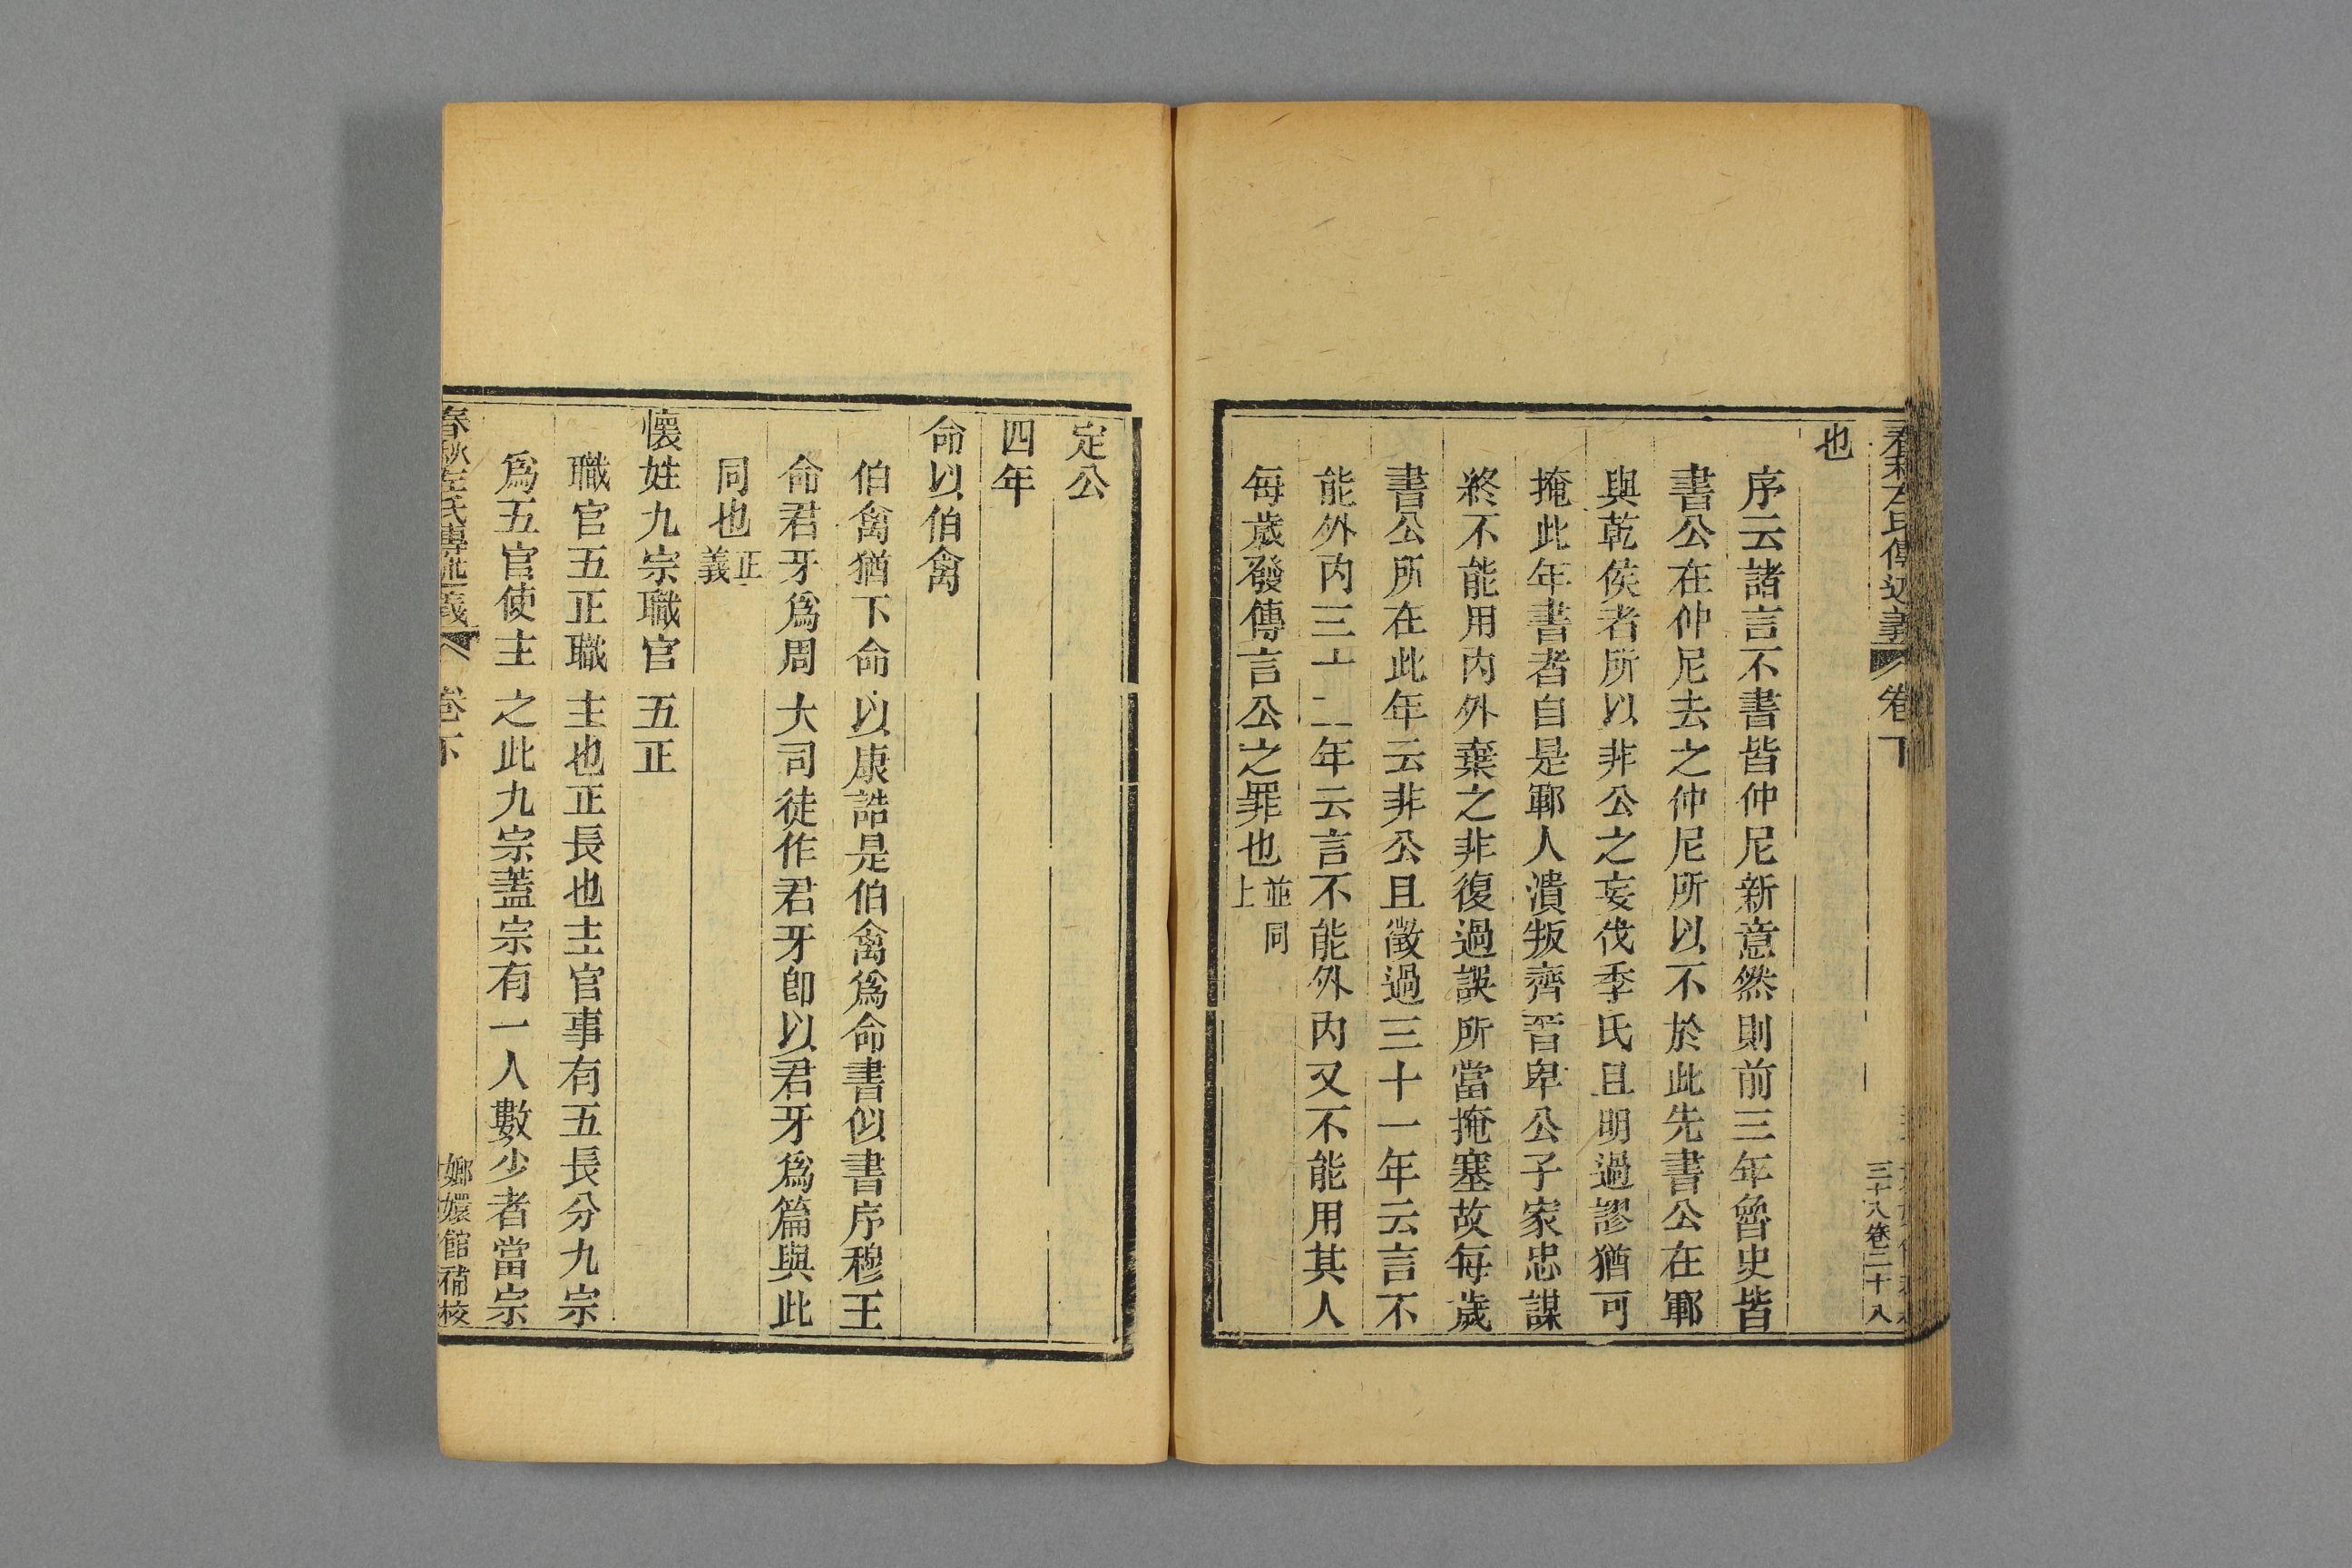 春秋左氏傳述義 卷下 三十八卷二十八
也
序云諸言不書皆仲尼新意然則前三年魯史皆
書公在仲尼去之仲尼所以不於此先書公在鄆
與乾侯者所以非公之妄伐季氏且明過謬猶可
掩此年書者自是鄆人潰叛齊晉卑公子家忠謀
終不能用內外棄之非復過誤所當掩塞故每歲
書公所在此年云非公且徵過三十一年云言不
能外內三十二年云言不能外內又不能用其人
每歲發傳言公之罪也並同上
定公
四年
命以伯禽
伯禽猶下命以康誥是伯禽爲命書似書序穆王
命君牙爲周大司徒作君牙卽以君牙爲篇與此
同也正義
懷姓九宗職官五正
職官五正職主也正長也主官事有五長分九宗
爲五官使主之此九宗蓋宗有一人數少者當宗
春秋左氏傳述義 卷下 嫏嬛館補校